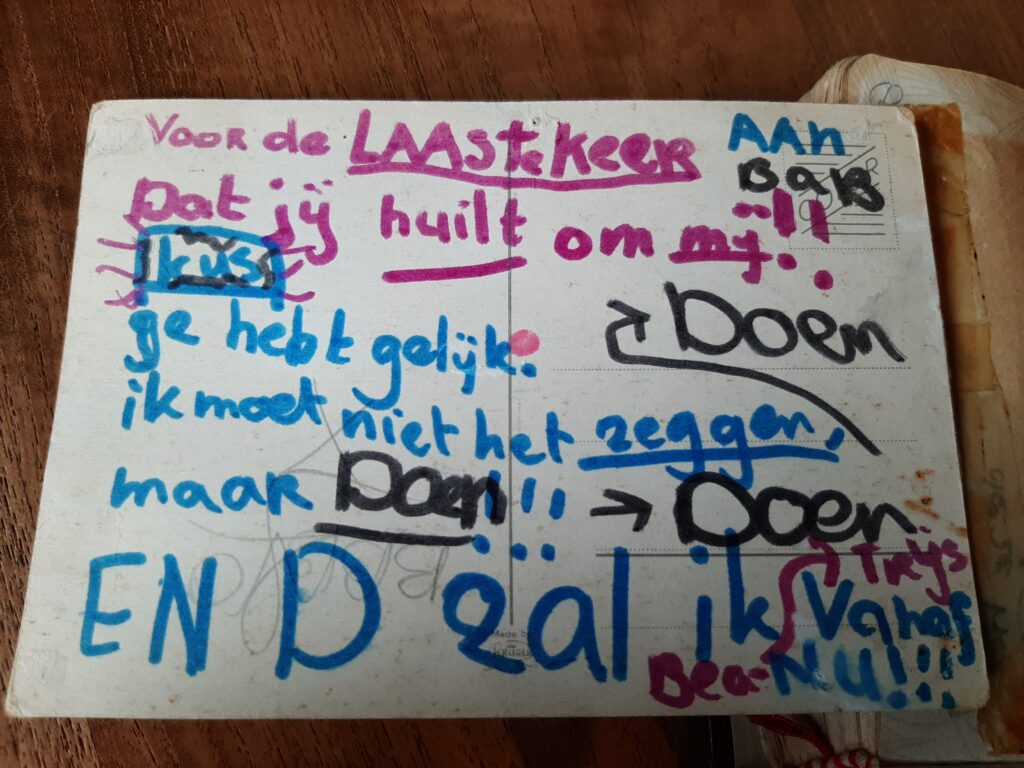 VOOR de LAASte KEER
AAn
BaB
Dat jij huilt om my!!!
kus
ge hebt gelijk.
Doen
ik moet niet het zeggen,
maar Doen!!!
Doen
EN D zal ik Vanaf
NU!!!
Bea-Trijs
Made by
KRÜGER